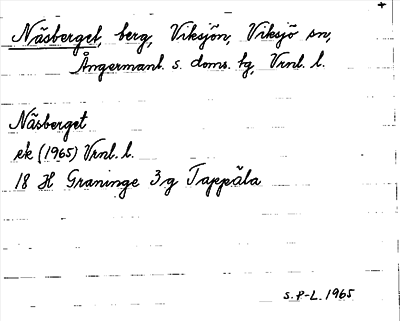 Näsberget, berg, Viksjön, Viksjö sn,
Ångermanl. s. doms. tg, Vrnl. l.
Näsberget
ek (1965) Vrnl. l.
18 H Graninge 3g Tappäla
S. P-L. 1965